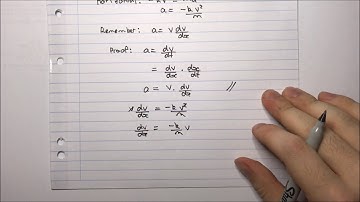 Horizontal: -kv² = ma
a = -kv²/m
Remember: a = v dv/dx
Proof: a = dv/dt
= dv/dx · dx/dt
a = v · dv/dx //
v dv/dx = -kv²/m
dv/dx = -k/m v
Sha